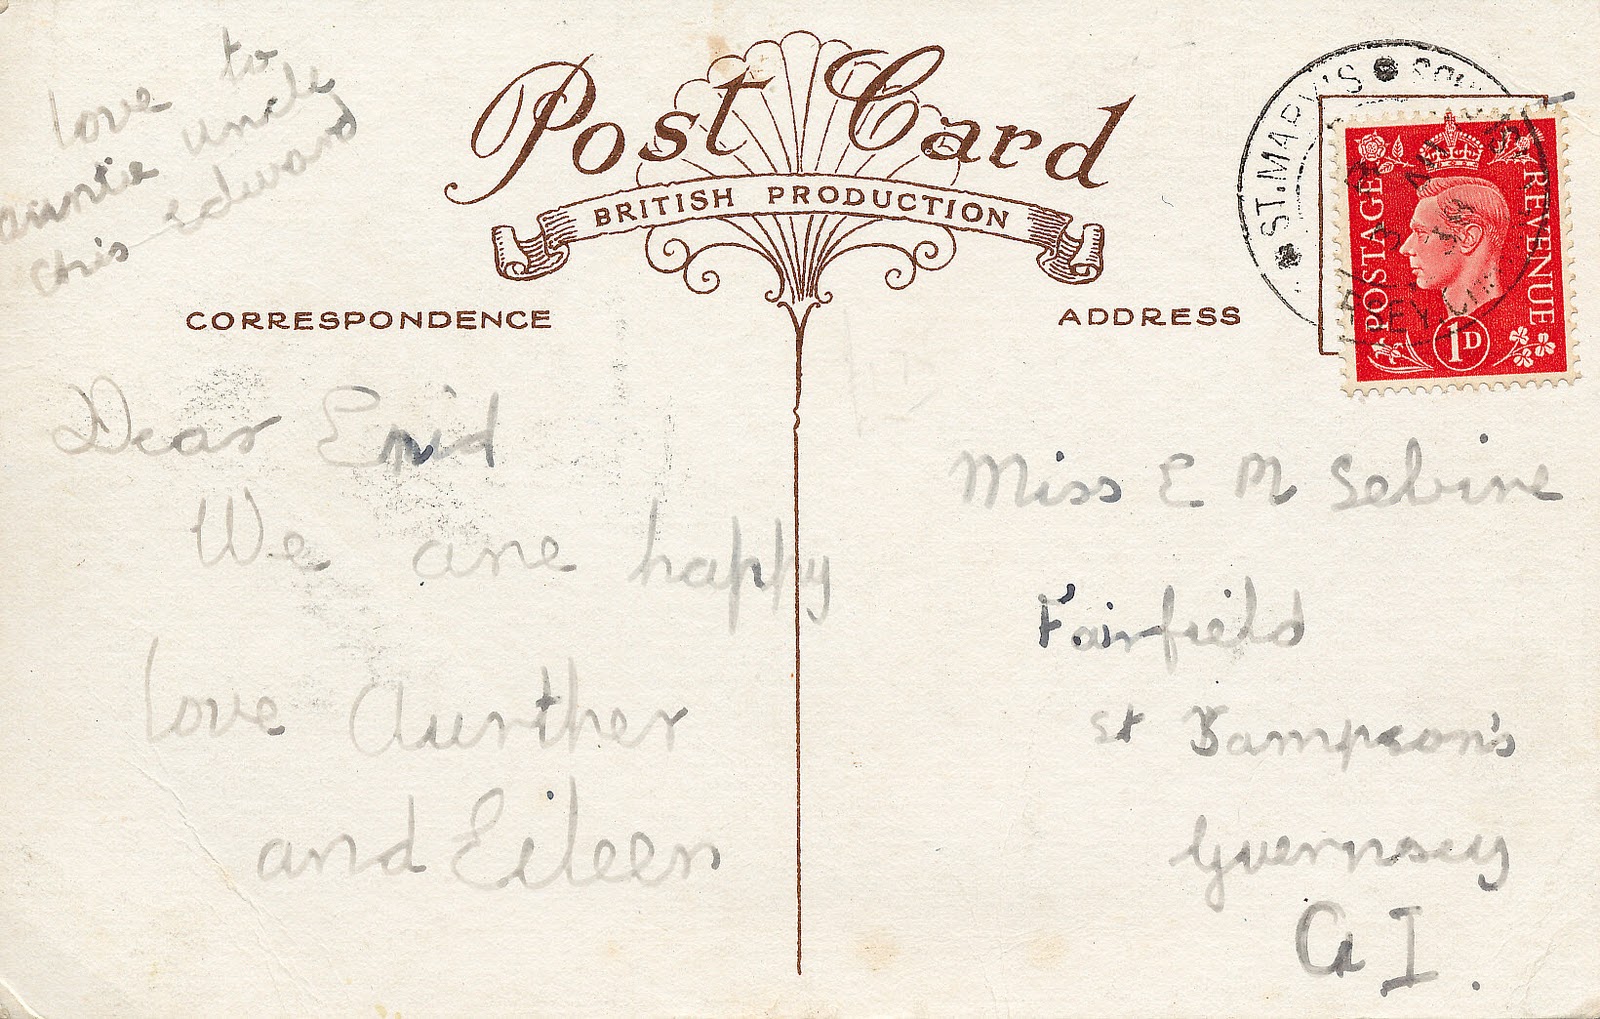 love to
auntie uncle
chris edward
Post Card
BRITISH PRODUCTION
CORRESPONDENCE
ADDRESS
ST. MARY'S
POSTAGE REVENUE
1D
Dear Enid
We are happy
love Aurther
and Eileen
Miss E M Sebire
Fairfield
St Sampson's
Guernsey
C I.